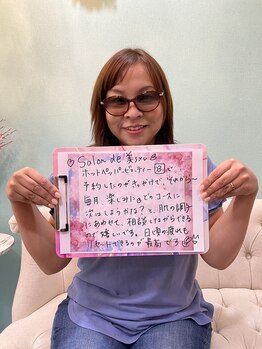 ♡Salon de 美syu
ホットペッパービューティー回で、
予約したのがきっかけで、4年めから〜
毎月、楽しみに通どのコースに
次はしようかな？と、肌の調子
にあわせて、相談しながらできる
ので嬉しいです。日頃の疲れも
リセットできるのが最高です